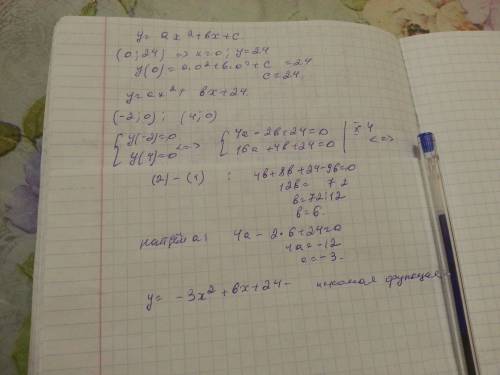 y = ax² + bx + c
(0; 24) => x=0; y=24
y(0) = a·0² + b·0 + c = 24
c = 24
y = ax² + bx + 24
(-2; 0); (4; 0)
{ y(-2)=0 <=> { 4a - 2b + 24 = 0 | x 4 <=>
{ y(4)=0 { 16a + 4b + 24 = 0
(2) - (1) : 4b + 8b + 24 - 96 = 0
12b = 72
b = 72:12
b = 6.
найдём a: 4a - 2·6 + 24 = 0
4a = -12
a = -3.
y = -3x² + 6x + 24 - искомая функция.